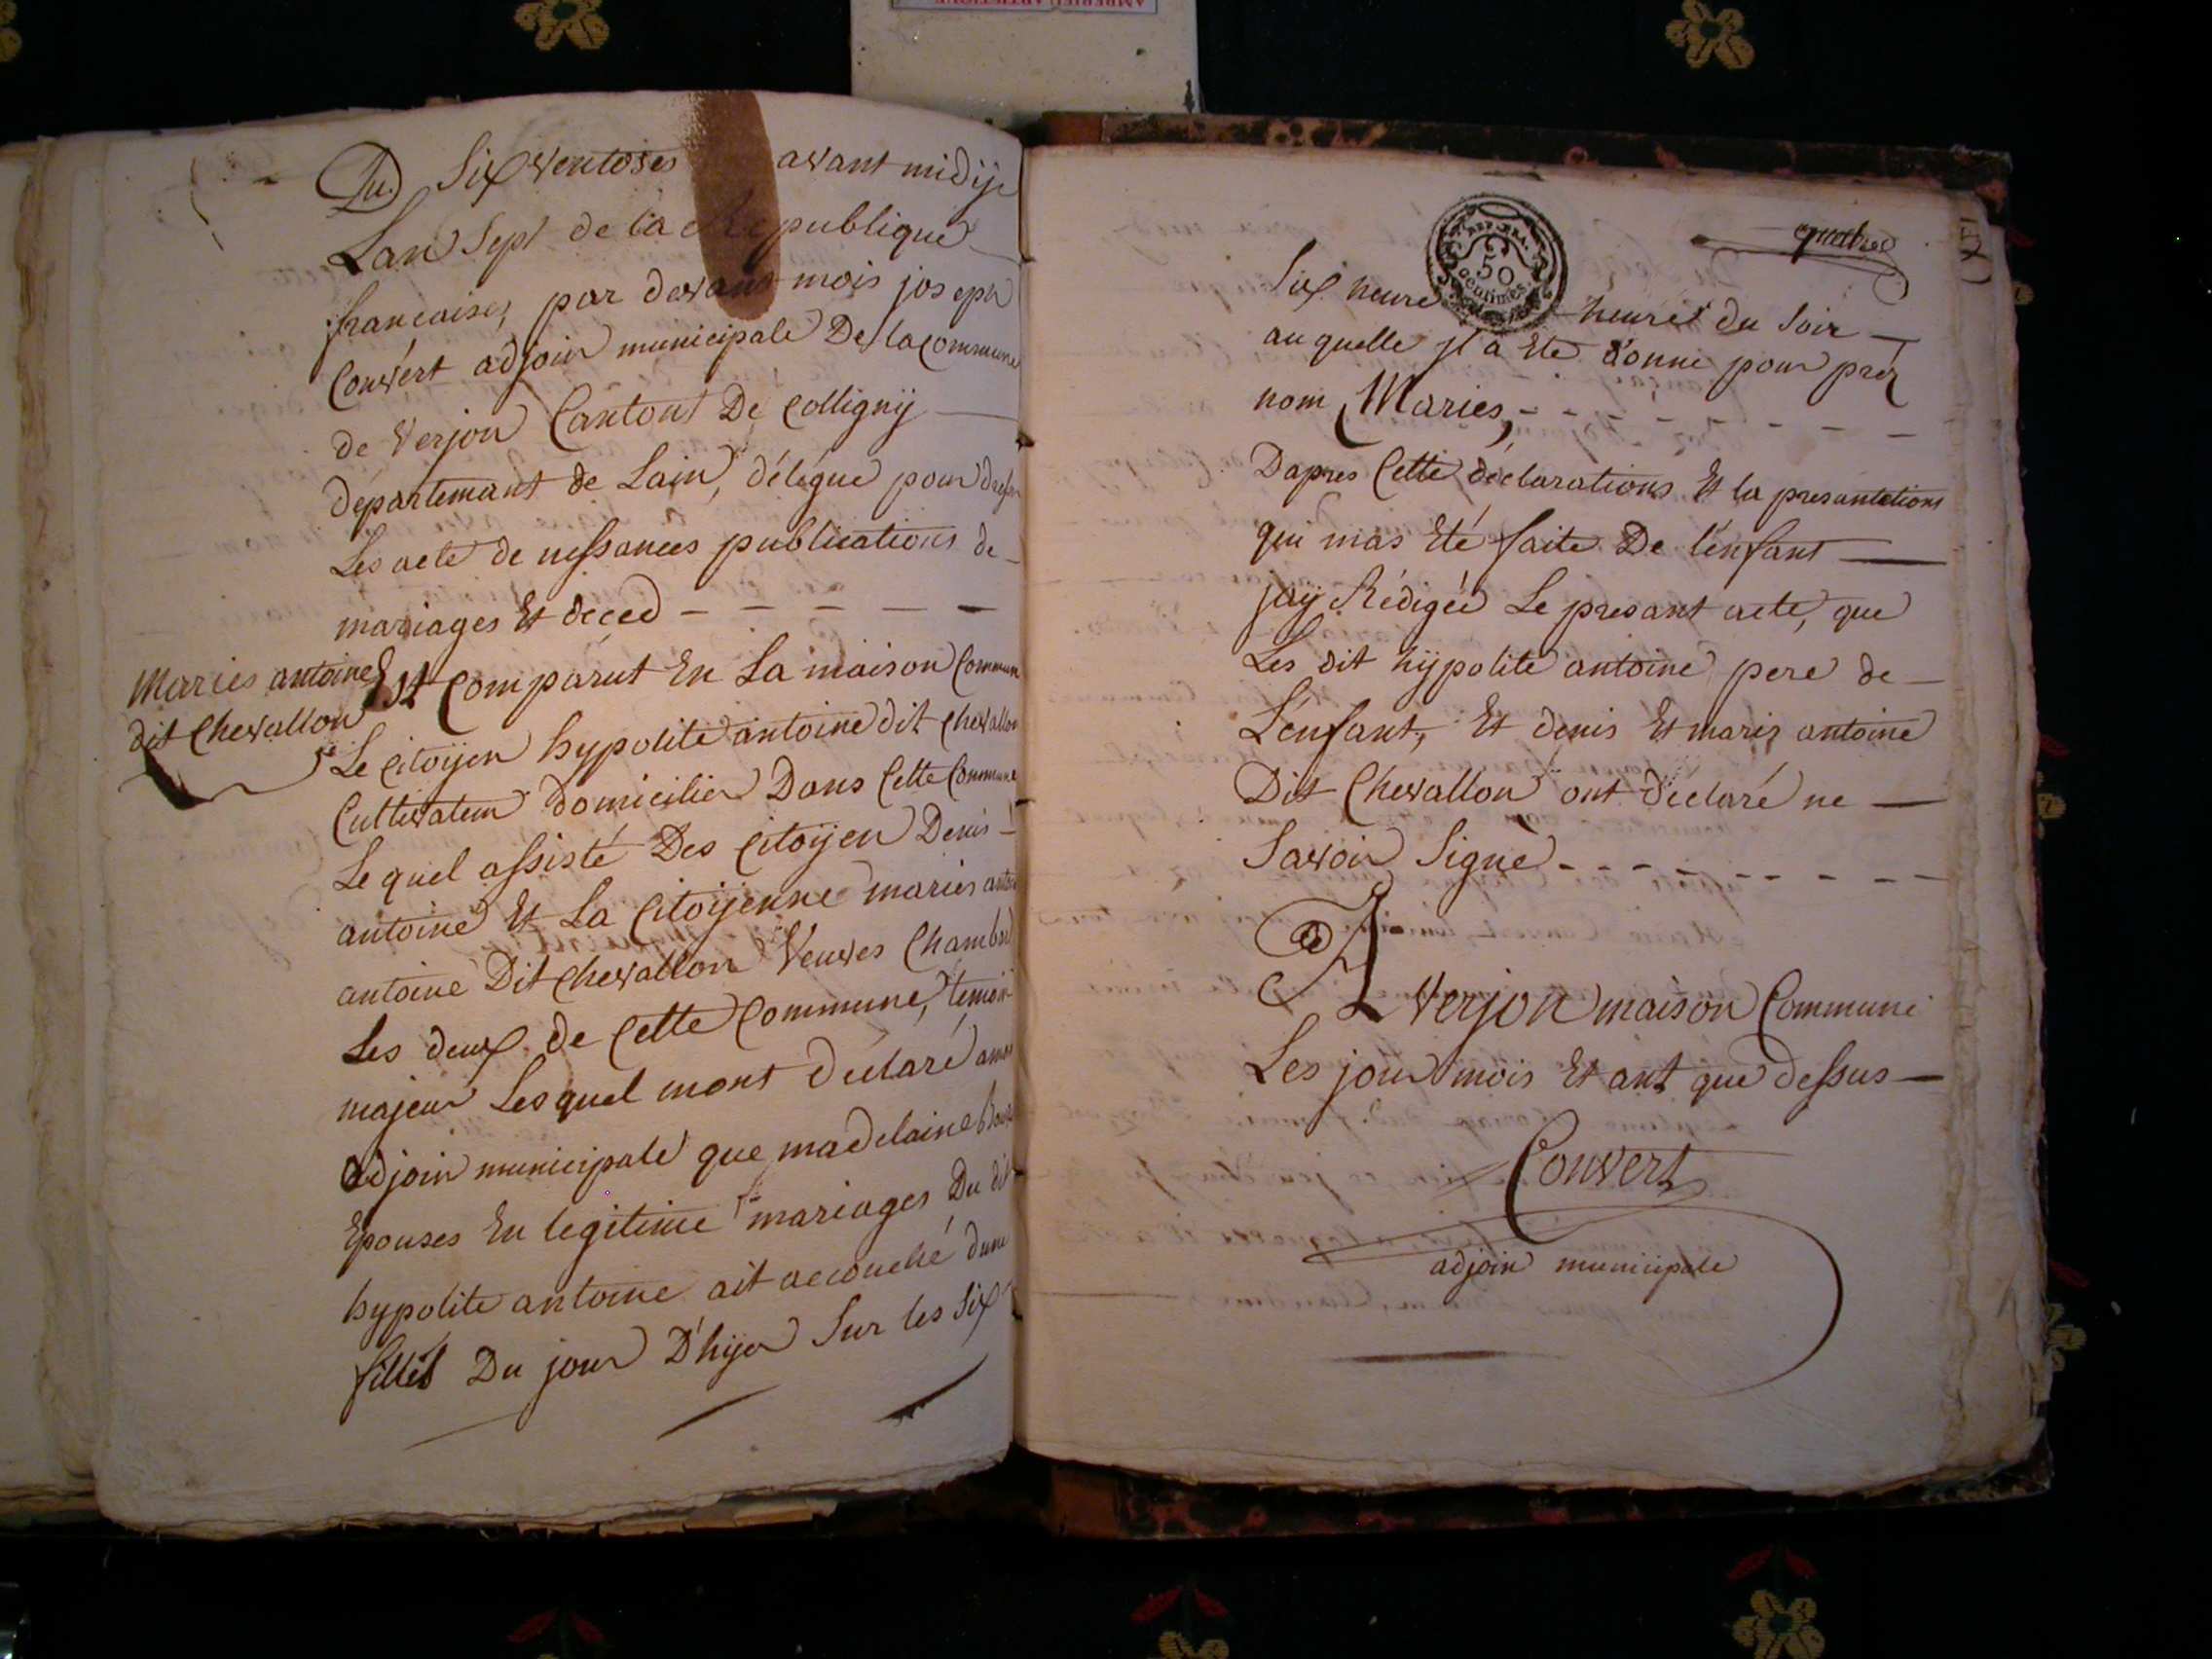 Du Six ventoses avant midij
Lan Sept de la Republique
francaises, par devant mois joseph
Convert adjoin municipale De la commune
de Verjon Cantont De Colligny
departemant de Lain, délégue pour dresser
Les acte de nessances publications de
mariages Et deced
Maries antoine
dit Chevallon
Est Comparut En La maison Commune
Le Citoijen hypolite antoine dit chevallon
Cultivateur domicilier Dans Cette Commune
Le quel assisté Des Citoijen Denis
antoine Et La Citoijenne maries
antoine Dit Chevallon Veuves
Les deux de Cette Commune, temoin
majeur Les quel mont déclaré amois
adjoin municipale que madelaine
Epouses En legitime mariages Du dit
hypolite antoine ait accouché dune
filles Du jour D'hijer Sur les Six
REP. FRA.
50
centimes
Six heure heures du Soir
au quelle jl a Ete donne pour pré
nom, Maries,
Dapres Cette déclarations Et la presantations
qui mas Eté faite De l'enfant
jaij Rédigée Le presant acte, que
Les dit hijpolite antoine pere de
L'enfant, Et denis Et maris antoine
Dit Chevallon ont déclaré ne
Savoir Signè
A Verjon maison Commune
Les jour mois Et ant que dessus
Convert
adjoin municipale